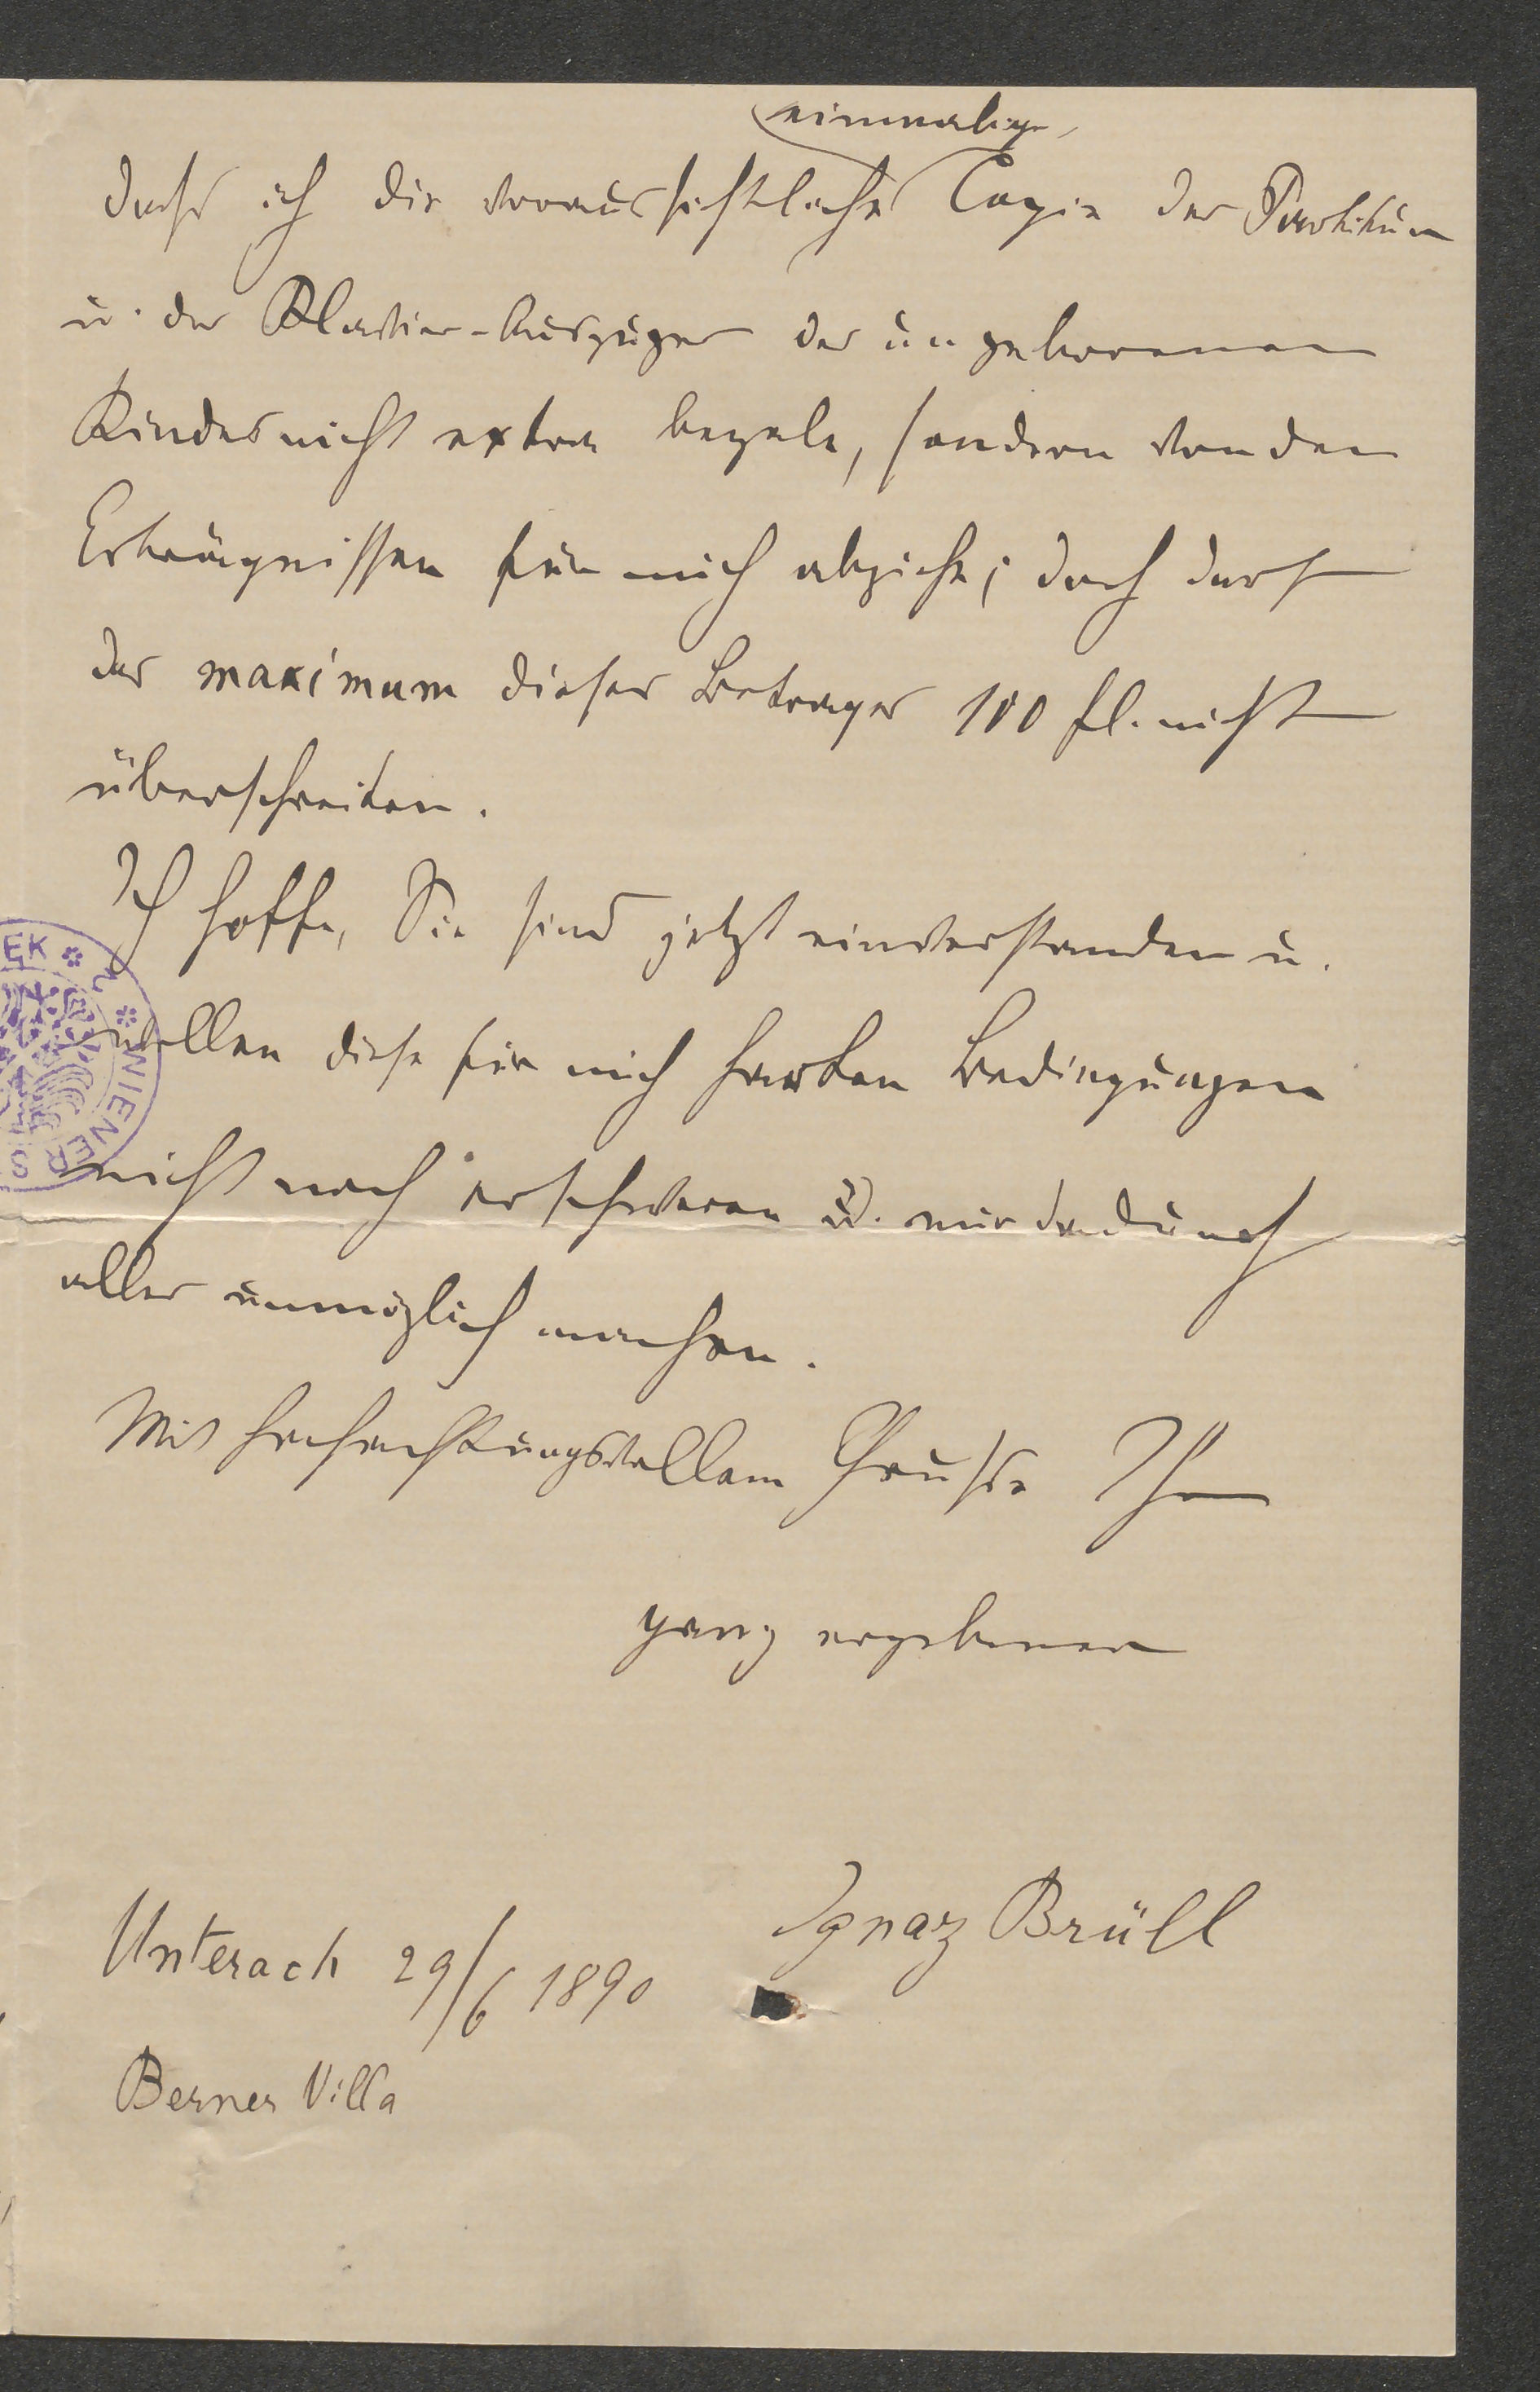 einmalige
dass ich die voraussichtliche Copie der Partitur
u. des Klavier-Auszuges des ungeborenen
Kindes nicht extra bezale, sondern von den
Erträgnissen für mich abziehe; doch darf
das maximum dieses Betrages 100 fl. nicht
überschreiten.
Ich hoffe, Sie sind jetzt einverstanden u.
wollen diese für mich harten Bedingungen
nicht noch erschweren u. mir dadurch
alles unmöglich machen.
Mit hochachtungsvollem Grusse Ihr
ganz ergebener
Ignaz Brüll
Unterach 29/6 1890
Berner Villa
EK * WIENER S